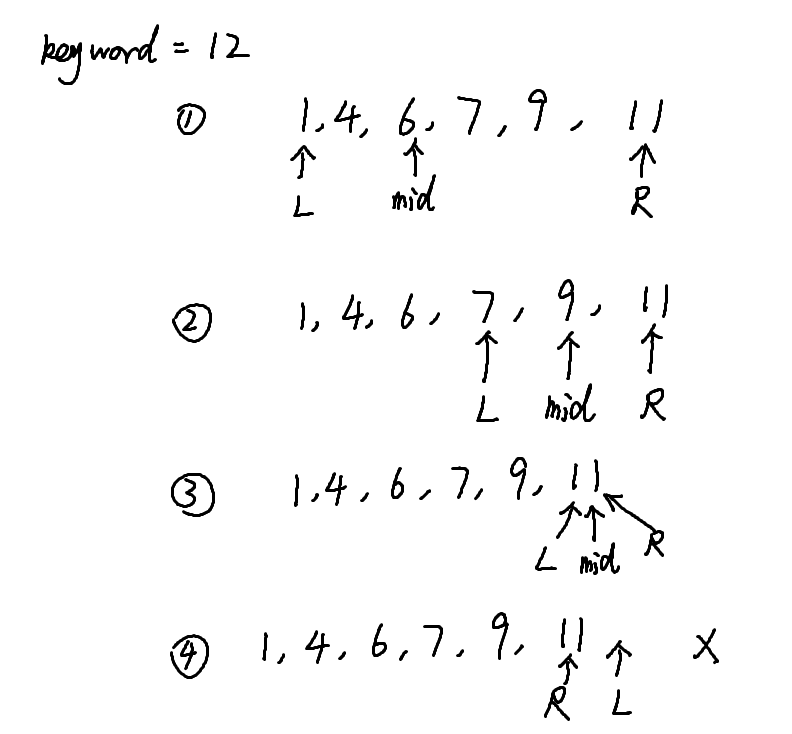 keyword = 12
① 1, 4, 6, 7, 9, 11
L mid R
② 1, 4, 6, 7, 9, 11
L mid R
③ 1, 4, 6, 7, 9, 11
L mid R
④ 1, 4, 6, 7, 9, 11 X
R L